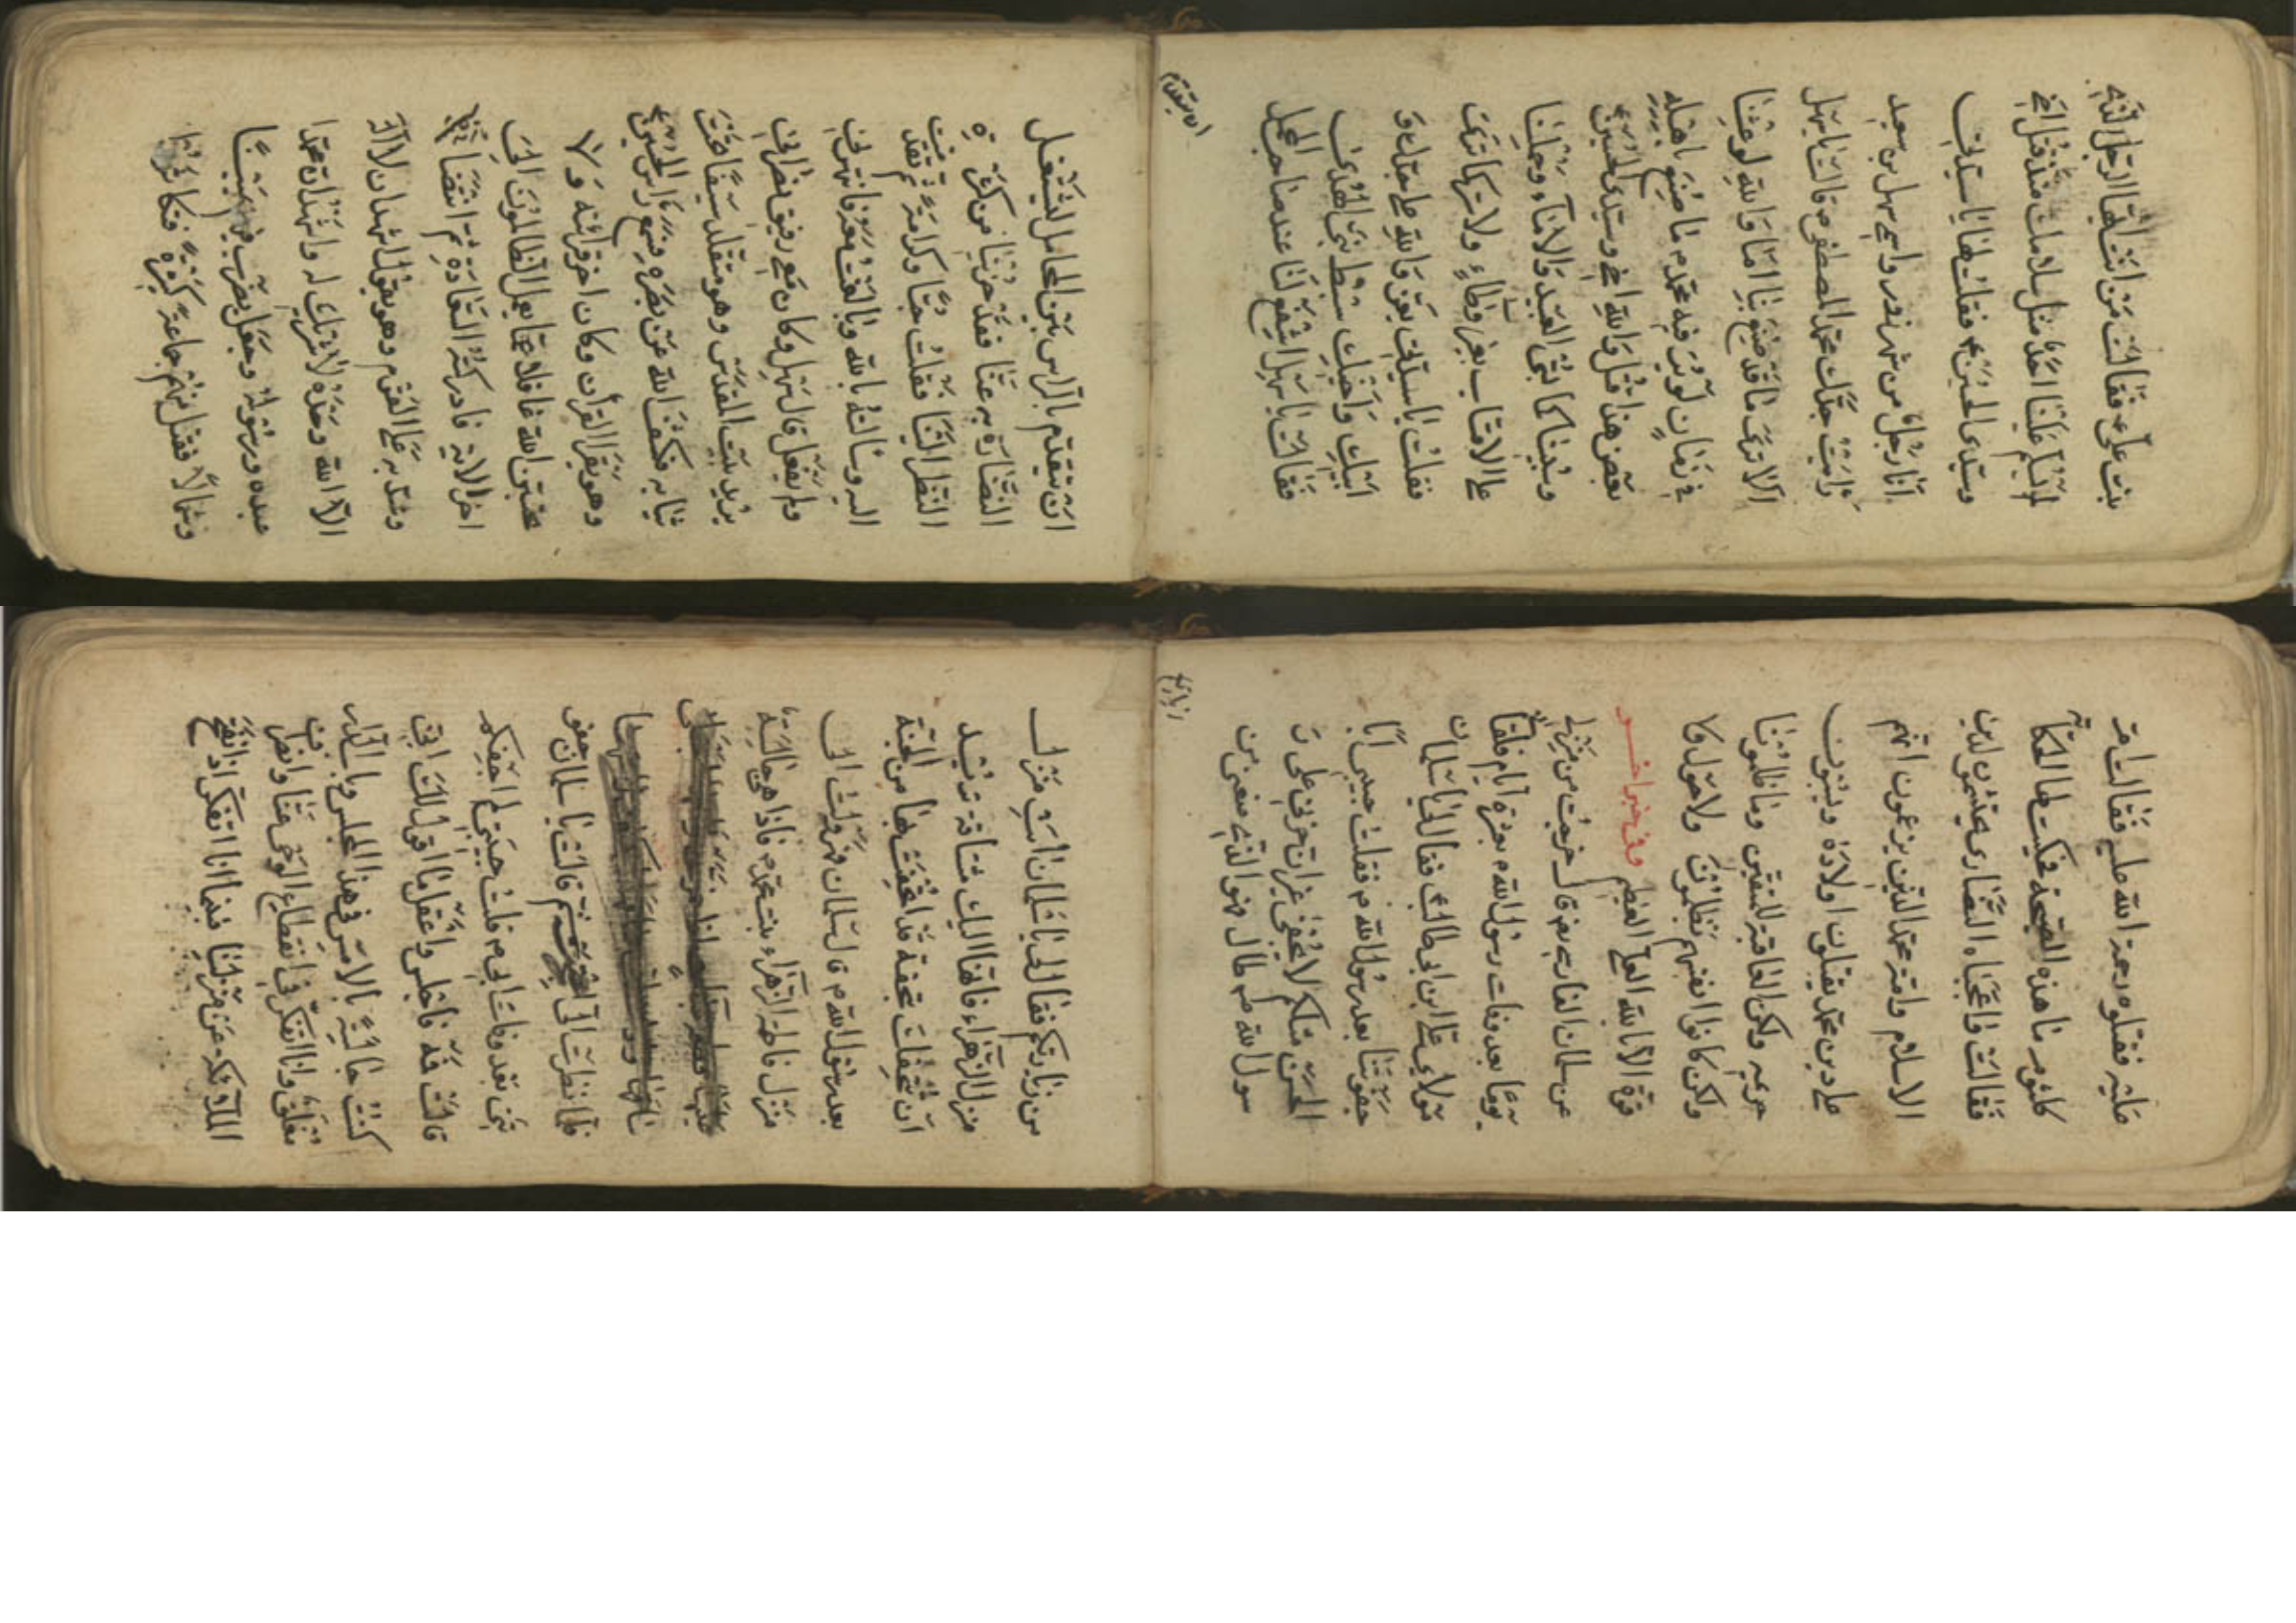 بنت علي ع فقالت من انت ايها الرجل الذي
لم يسلم علينا احد مثل سلامك منذ قتل اخي
وسيدي الحسين ع فقلت لها يا سيدتي
انا رجل من شهرزور واسمي سهل بن سعيد
رايت جدك محمد المصطفى ص قالت يا سهل
الا ترى ما قد صنع بنا اما والله لو عشنا
في زمان لم ير فيه محمد ص ما صنع باهله
بعض هذا قتل والله اخي وسيدي الحسين ع
وسبينا كما تسبى العبيد والاماء وحملنا
على الاقتاب بغير وطاء ولا تر كما ترى
فقلت يا سيدتي يعز والله على جدك و
ابيك واخيك سبط نبي الهدى
فقالت يا سهل اشفع لنا عند صاحب المحمل
ان يتقدم
ان يتقدم بالراس بين المحامل ليشتغل
النظارة بها عنا فقد خزينا من كثرة
النظر الينا فقلت حبا وكرامة ثم تقدمت
اليه وسالته بالله وبالغت معه فانتهرني
ولم يفعل قال سهل وكان معي رفيق نصراني
يريد بيت المقدس وهو متقلد سيفا تحت
ثيابه فكشف الله عن بصره فسمع راس الحسين ع
وهو يقرأ القرآن وكان اخر قرائته ولا
تحسبن الله غافلا عما يعمل الظالمون الى
اخر الاية فادركته السعادة ثم انتضا سيفه
وشد به على القوم وهو يقول اشهد ان لا اله
الا الله وحده لا شريك له واشهد ان محمدا
عبده ورسوله وجعل يضرب فيهم يمينا
وشمالا فقتل منهم جماعة كثيرة فتكاثروا
عليه فقتلوه رحمة الله عليه فقالت ام
كلثوم ما هذه الصيحة فحكيت لها الحكاية
فقالت واعجباه النصارى يحتشمون لدين
الاسلام وامة محمد الذين يزعمون انهم
على دين محمد يقتلون اولاده ويسبون
حريمه ولكن العاقبة للمتقين وما ظلمونا
ولكن كانوا انفسهم يظلمون ولا حول ولا
قوة الا بالله العلي العظيم وفي خبر اخر
عن سلمان الفارسي رض قال خرجت من منزلي
يوما بعد وفات رسول الله ص بعشرة ايام فلقا
مولاي علي ابن ابي طالب ع فقال لي يا سلمان
جفوتنا بعد رسول الله ص فقلت حبيبي ابا
الحسن مثلكم لا يجفى غير ان حزني على ر
سول الله ص طال فهو الذي منعني من
زيارتكم
من زيارتكم فقال لي يا سلمان ائت منزل
منزل الزهراء فانها اليك مشتاقة تريد
ان تتحفك بتحفة قد اتحفت بها من الجنة
بعد رسول الله ص قال سلمان فهرولت الى
منزل فاطمة الزهراء بنت محمد ص فاذا هي جالسة
فلما نظرت الي اعتجرت ثم قالت يا سلمان جفو
تني بعد وفات ابي ص قلت حبيبتي لم اجفكم
قالت فمه فاجلس واعقل ما اقول لك اني
كنت جالسة بالامس في هذا المجلس وباب الدار
مغلق وانا اتفكر في انقطاع الوحي عنا وانصراف
الملائكة عن منزلنا فبينما انا اتفكر اذ انفتح